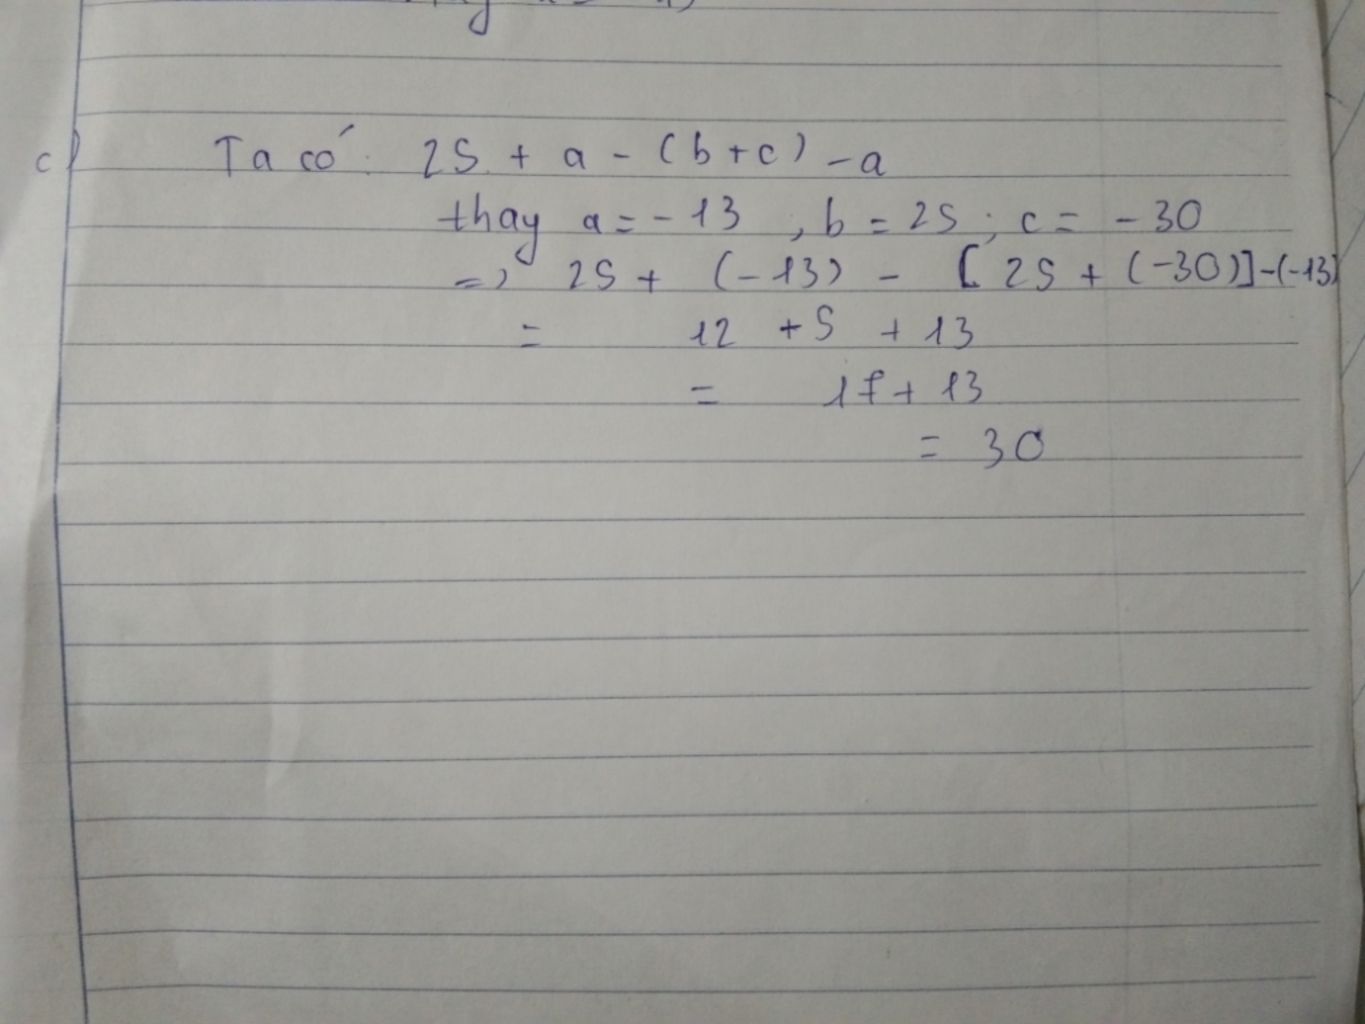 c) Ta có: 25 + a - (b+c) - a
thay a = -13, b = 25; c = -30
=> 25 + (-13) - [25 + (-30)] - (-13)
= 12 + 5 + 13
= 17 + 13
= 30